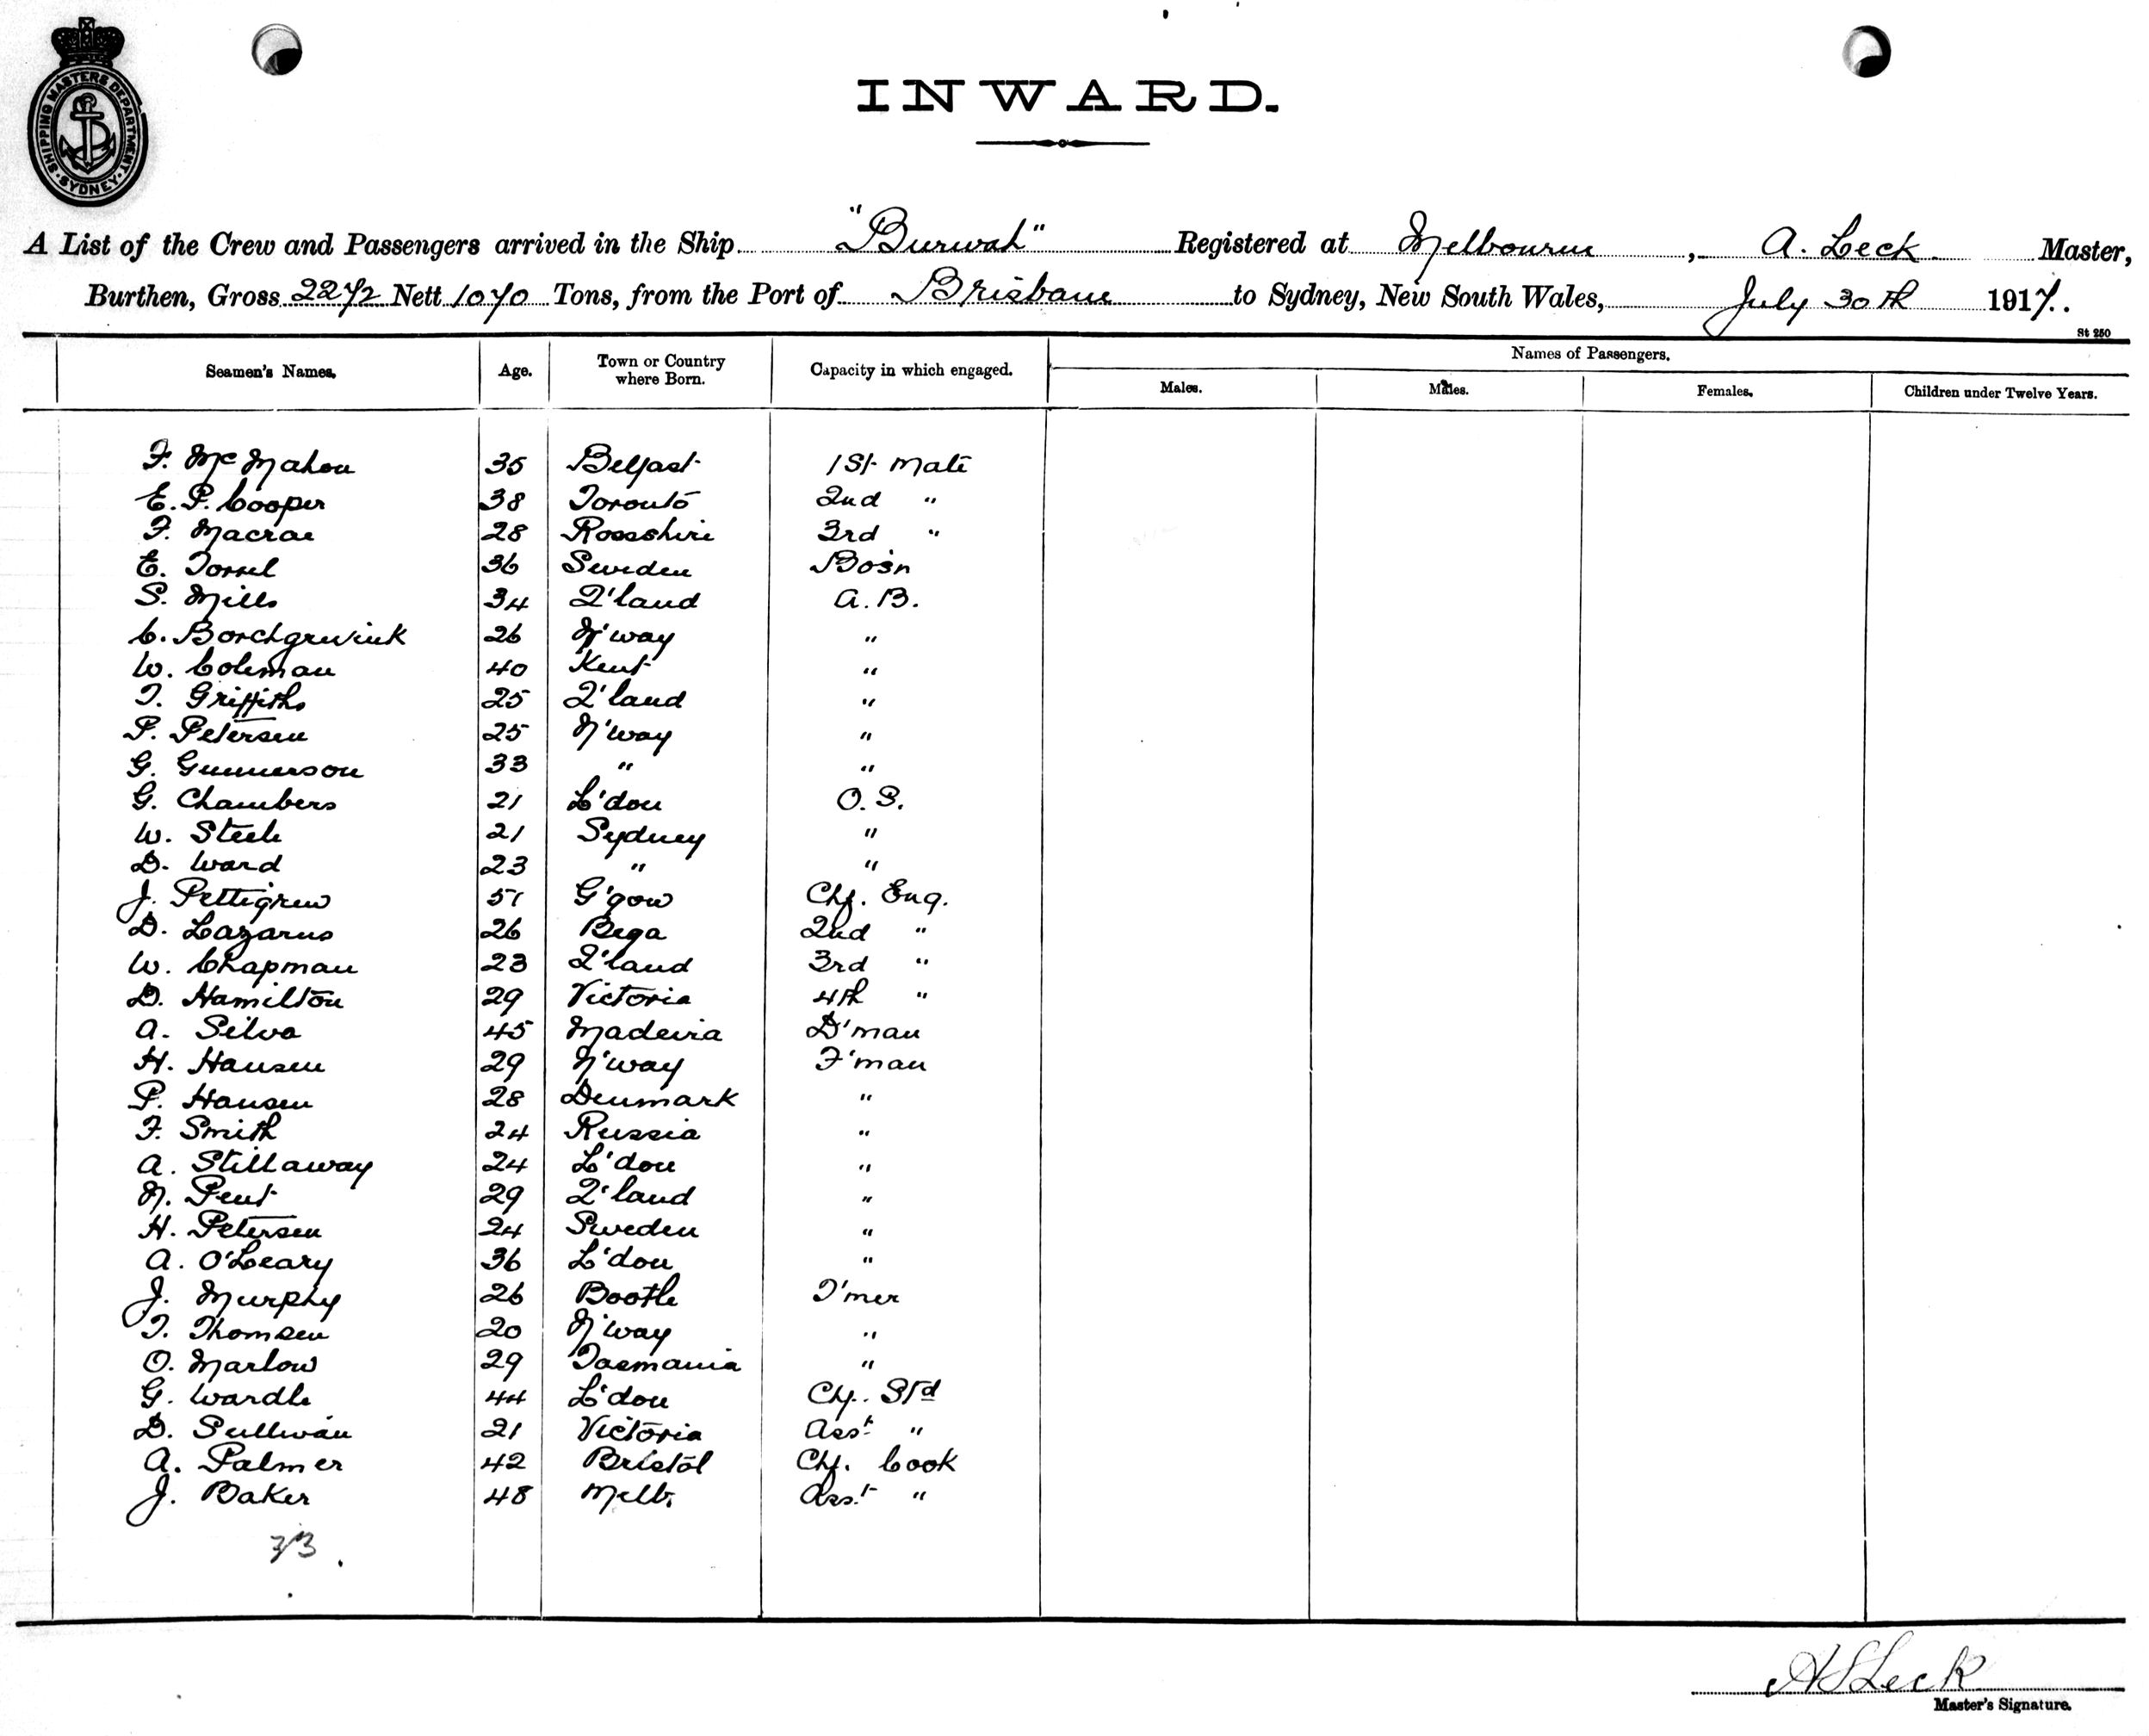 SHIPPING MASTERS DEPARTMENT · SYDNEY ·
INWARD.
A List of the Crew and Passengers arrived in the Ship "Burwah" Registered at Melbourne, A. Leck Master,
Burthen, Gross 2272 Nett 1070 Tons, from the Port of Brisbane to Sydney, New South Wales, July 30th 1917.
St 250
Seamen's Names. Age. Town or Country where Born. Capacity in which engaged. Names of Passengers.
Males. Males. Females. Children under Twelve Years.
F. McMahon 35 Belfast 1st Mate
E. P. Cooper 38 Toronto 2nd "
F. Macrae 28 Rossshire 3rd "
E. Torsel 36 Sweden Bo'sn
S. Mills 34 Q'land A.B.
C. Borchgrevink 26 N'way "
W. Coleman 40 Kent "
T. Griffiths 25 Q'land "
P. Petersen 25 N'way "
G. Gunnerson 33 " "
G. Chambers 21 L'don O.S.
W. Steele 21 Sydney "
D. Ward 23 " "
J. Pettigrew 51 G'gow Chf. Eng.
D. Lazarus 26 Bega 2nd "
W. Chapman 23 Q'land 3rd "
D. Hamilton 29 Victoria 4th "
A. Silva 45 Madeira D'man
H. Hansen 29 N'way F'man
P. Hansen 28 Denmark "
F. Smith 24 Russia "
A. Stillaway 24 L'don "
N. Pent 29 Q'land "
H. Petersen 24 Sweden "
A. O'Leary 36 L'don "
J. Murphy 26 Bootle T'mer
T. Thomsen 20 N'way "
O. Marlow 29 Tasmania "
G. Wardle 44 L'don Chf. Std
D. Sullivan 21 Victoria Asst "
A. Palmer 42 Bristol Chf. Cook
J. Baker 48 Melb. Asst "
33.
A S Leck
Master's Signature.